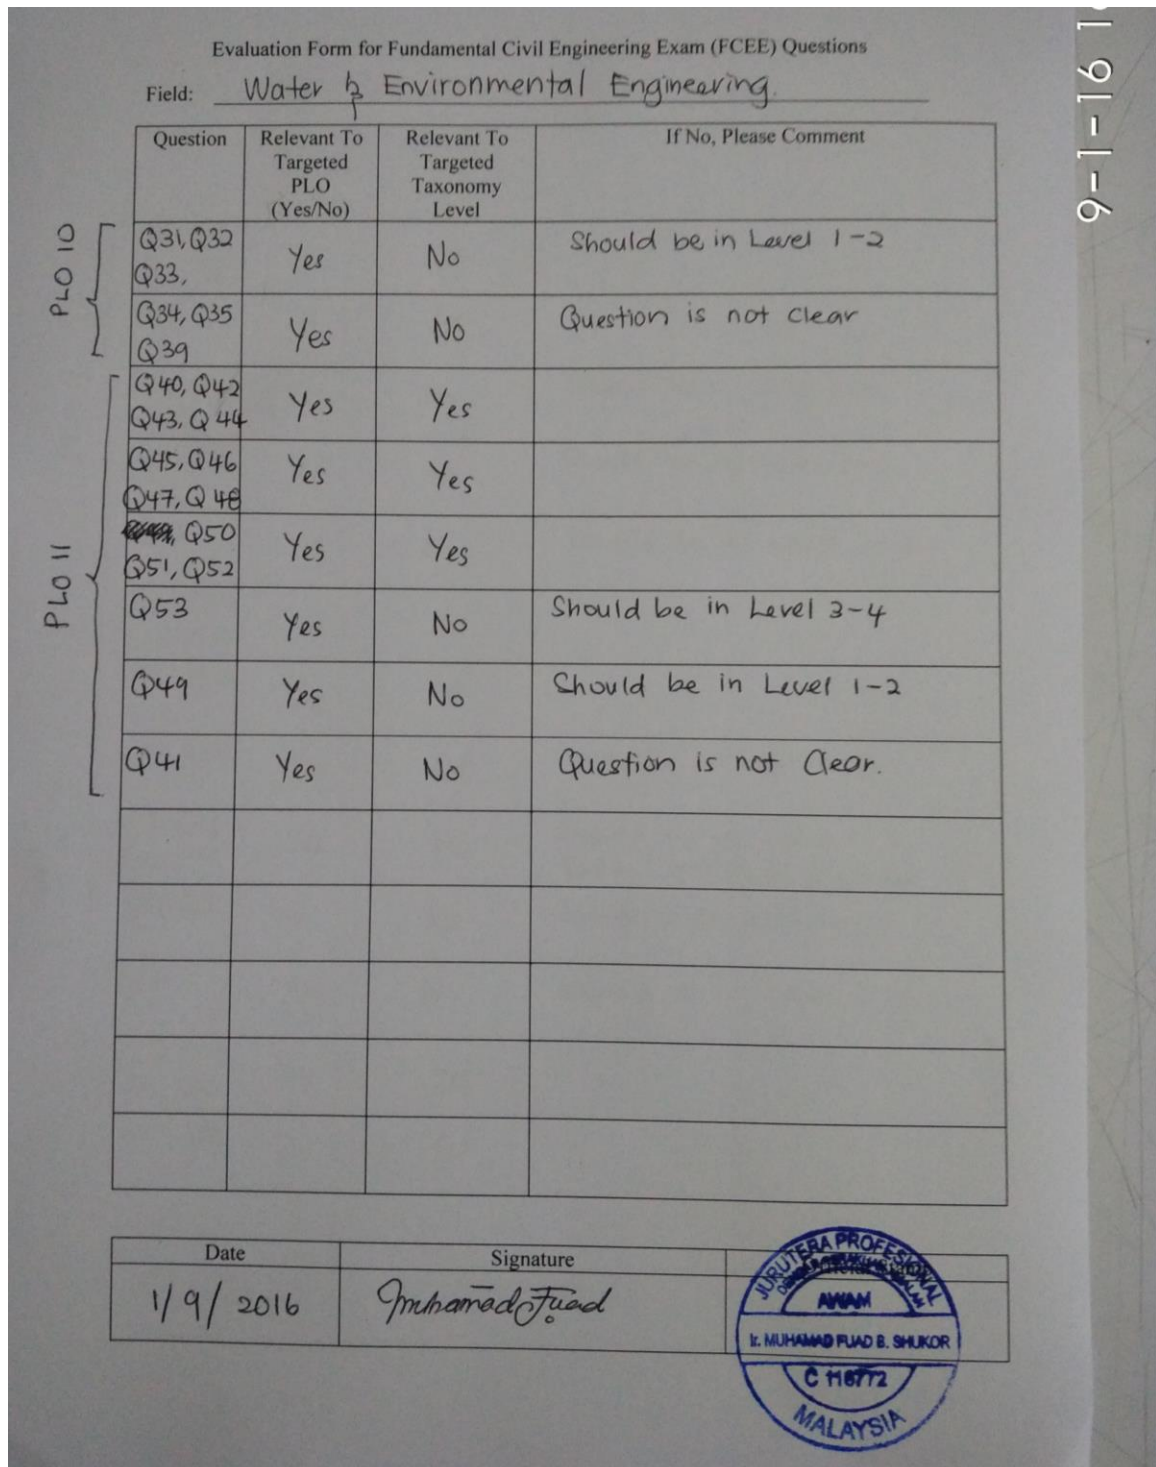 Evaluation Form for Fundamental Civil Engineering Exam (FCEE) Questions
Field: Water & Environmental Engineering.
Question
Relevant To
Targeted
PLO
(Yes/No)
Relevant To
Targeted
Taxonomy
Level
If No, Please Comment
PLO 10
Q31, Q32
Q33,
Yes
No
Should be in Level 1-2
Q34, Q35
Q39
Yes
No
Question is not clear
PLO 11
Q40, Q42
Q43, Q44
Yes
Yes
Q45, Q46
Q47, Q48
Yes
Yes
, Q50
Q51, Q52
Yes
Yes
Q53
Yes
No
Should be in Level 3-4
Q49
Yes
No
Should be in Level 1-2
Q41
Yes
No
Question is not Clear.
Date
Signature
1/9/2016
Muhamad Fuad
JURUTERA PROFESIONAL
AWAM
Ir. MUHAMAD FUAD B. SHUKOR
MALAYSIA
9-1-16